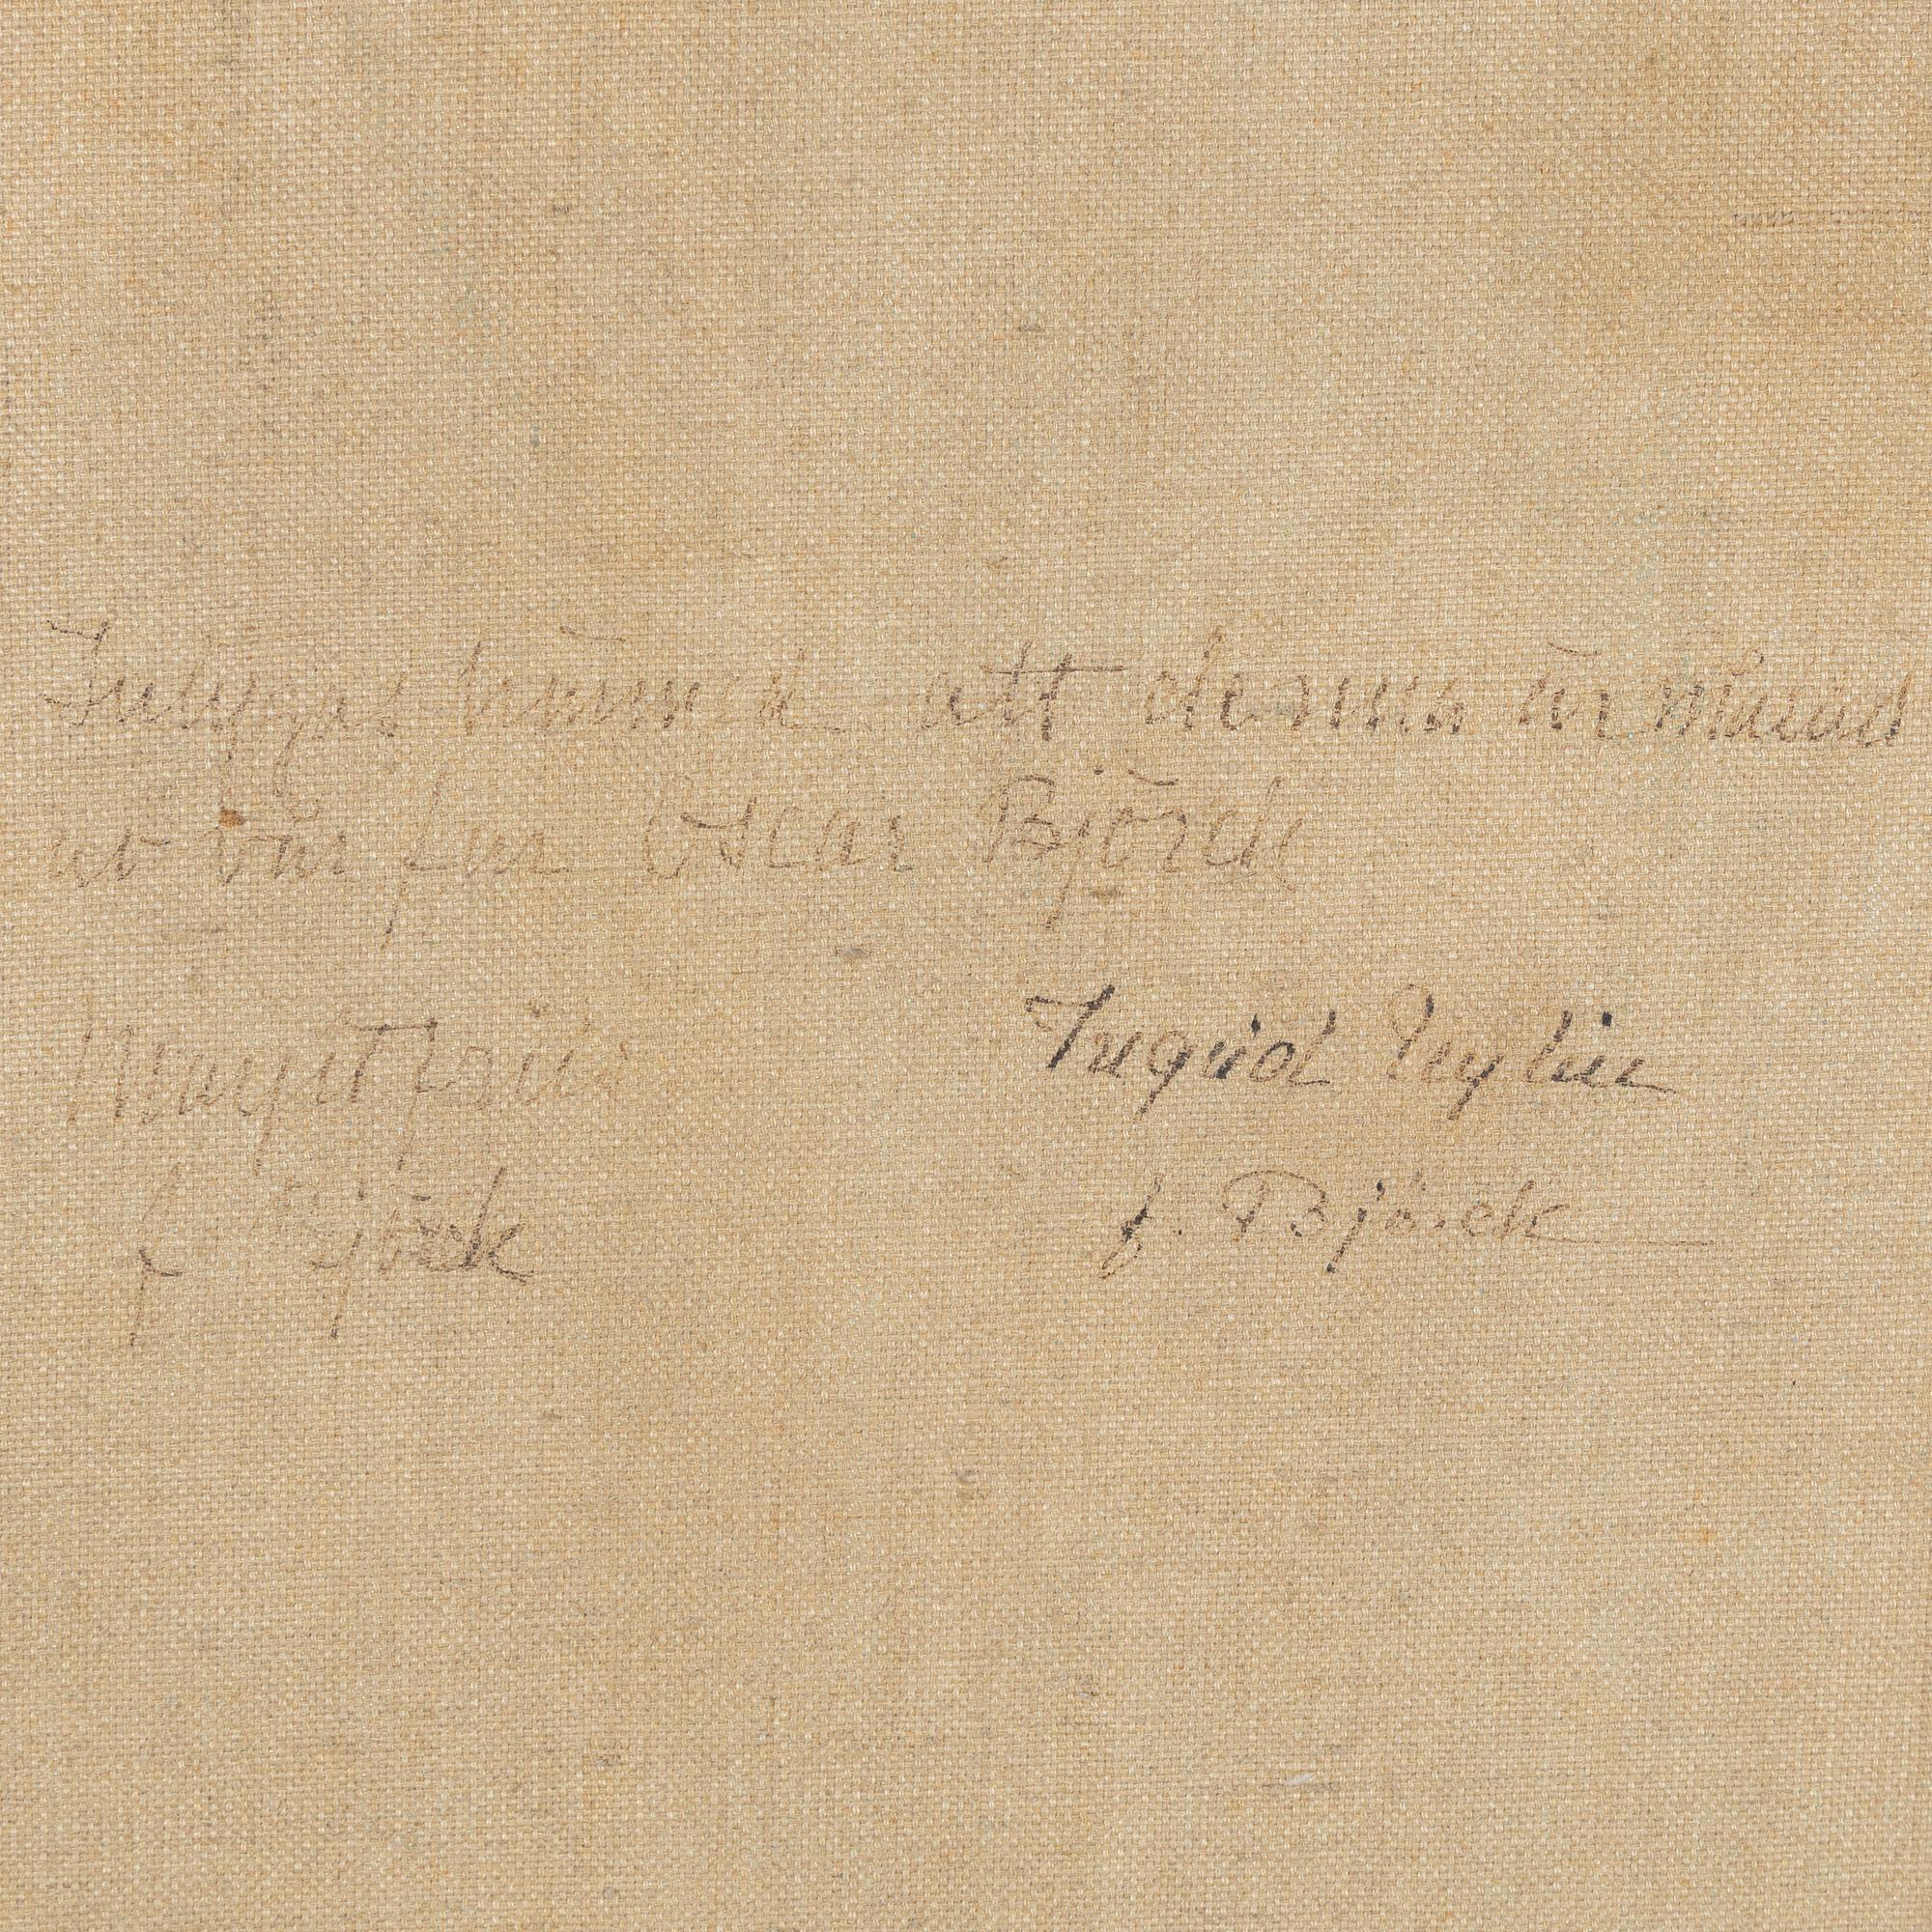 Intygas härmed att denna är målad
av vår far Oscar Björck
Margit
Ingrid
f Björck
f. Björck